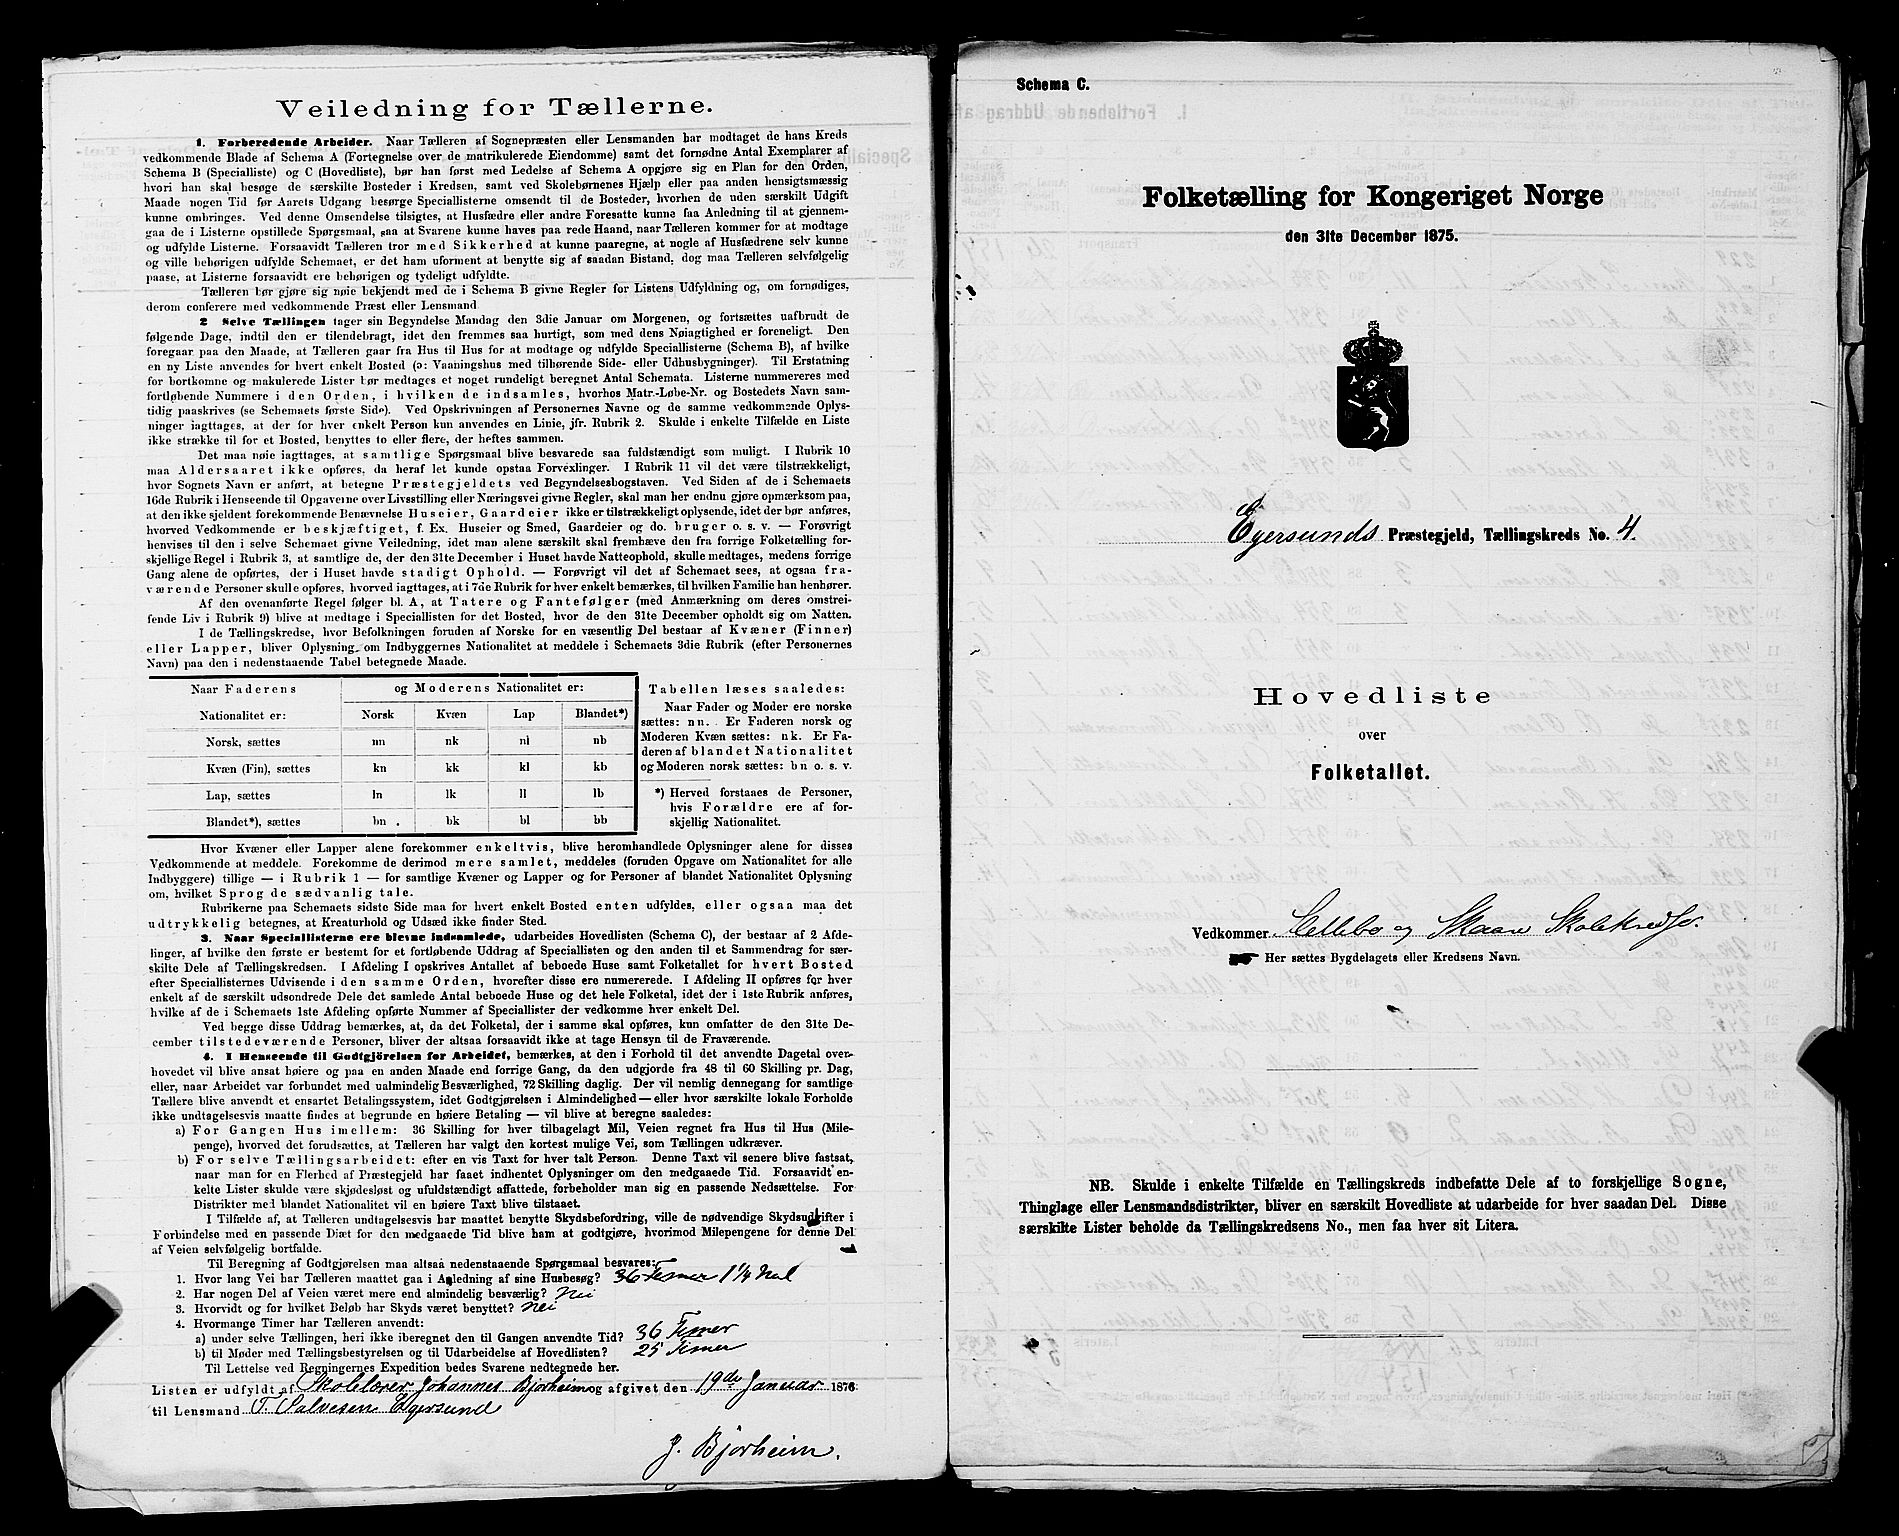 Veiledning for Tællerne.
1. Forberedende Arbeider. Naar Tælleren af Sognepræsten eller Lensmanden har modtaget de hans Kreds
vedkommende Blade af Schema A (Fortegnelse over de matrikulerede Eiendomme) samt det fornødne Antal Exemplarer af
Schema B (Specialliste) og C (Hovedliste), bør han først med Ledelse af Schema A opgjøre sig en Plan for den Orden,
hvori han skal besøge de særskilte Bosteder i Kredsen, samt ved Skolebørnenes Hjælp eller paa anden hensigtsmæssig
Maade nogen Tid før Aarets Udgang besørge Speciallisterne omsendt til de Bosteder, hvorhen de uden særskilt Udgift
kunne ombringes. Ved denne Omsendelse tilsigtes, at Husfædre eller andre Foresatte kunne faa Anledning til at gjennem-
gaa de i Listerne opstillede Spørgsmaal, saa at Svarene kunne haves paa rede Haand, naar Tælleren kommer for at modtage
og udfylde Listerne. Forsaavidt Tælleren tror med Sikkerhed at kunne paaregne, at nogle af Husfædrene selv kunne
og ville behørigen udfylde Schemaet, er det ham uforment at benytte sig af saadan Bistand, dog maa Tælleren selvfølgelig
paase, at Listerne forsaavidt ere behørigen og tydeligt udfyldte.
Tælleren bør gjøre sig nøie bekjendt med de i Schema B givne Regler for Listens Udfyldning og, om fornødiges,
derom conferere med vedkommende Præst eller Lensmand.
2 Selve Tællingen tager sin Begyndelse Mandag den 3die Januar om Morgenen, og fortsættes uafbrudt de
følgende Dage, indtil den er tilendebragt, idet den fremmes saa hurtigt, som med dens Nøiagtighed er foreneligt. Den
foregaar paa den Maade, at Tælleren gaar fra Hus til Hus for at modtage og udfylde Speciallisterne (Schema B), af hvilke
en ny Liste anvendes for hvert enkelt Bosted (ɔ: Vaaningshus med tilhørende Side- eller Udhusbygninger). Til Erstatning
for bortkomne og makulerede Lister bør medtages et noget rundeligt beregnet Antal Schemata. Listerne nummereres med
fortløbende Nummere i den Orden, i hvilken de indsamles, hvorhos Matr.-Løbe-Nr. og Bostedets Navn sam-
tidig paaskrives (se Schemaets første Side). Ved Opskrivningen af Personernes Navne og de samme vedkommende Oplys-
ninger iagttages, at der for hver enkelt Person kun anvendes en Linie, jfr. Rubrik 2. Skulde i enkelte Tilfælde en Liste
ikke strække til for et Bosted, benyttes to eller flere, der heftes sammen.
Det maa nøie iagttages, at samtlige Spørgsmaal blive besvarede saa fuldstændigt som muligt. I Rubrik 10
maa Aldersaaret ikke opføres, da heraf let kunde opstaa Forvexlinger. I Rubrik 11 vil det være tilstrækkeligt,
hvor Sognets Navn er anført, at betegne Præstegjeldets ved Begyndelsesbogstaven. Ved Siden af de i Schemaets
16de Rubrik i Henseende til Opgaverne over Livsstilling eller Næringsvei givne Regler, skal man her endnu gjøre opmærksom paa,
at den ikke sjeldent forekommende Benævnelse Huseier, Gaardeier ikke er tilstrækkeligt oplysende, idet der bør anføres,
hvorved Vedkommende er beskjæftiget, f. Ex. Huseier og Smed, Gaardeier og do. bruger o. s. v. — Forøvrigt
henvises til den i selve Schemaet givne Veiledning, idet man alene særskilt skal fremhæve den fra forrige Folketælling for-
skjellige Regel i Rubrik 3, at samtlige de, der den 31te December i Huset havde Natteophold, skulle medtages, medens forrige
Gang alene de opførtes, der i Huset havde stadigt Ophold. — Forøvrigt vil det af Schemaet sees, at ogsaa fra-
værende Personer skulle opføres, hvorved iagttages, at i 7de Rubrik for hver enkelt bemærkes, til hvilken Familie han henhører.
Af den ovenanførte Regel følger bl. A, at Tatere og Fantefølger (med Anmærkning om deres omstrei-
fende Liv i Rubrik 9) blive at medtage i Speciallisten for det Bosted, hvor de den 31te December opholdt sig om Natten.
I de Tællingskredse, hvor Befolkningen foruden af Norske for en væsentlig Del bestaar af Kvæner (Finner)
eller Lapper, bliver Oplysning om Indbyggernes Nationalitet at meddele i Schemaets 3die Rubrik (efter Personernes
Navn) paa den i nedenstaaende Tabel betegnede Maade.
Naar Faderens og Moderens Nationalitet er:
Nationalitet er: Norsk Kvæn Lap Blandet*)
Norsk, sættes nn nk nl nb
Kvæn (Fin), sættes kn kk kl kb
Lap, sættes ln lk ll lb
Blandet*), sættes bn. bk bl bb
Tabellen læses saaledes:
Naar Fader og Moder ere norske
sættes: nn. Er Faderen norsk og
Moderen Kvæn sættes: nk. Er Fa-
deren af blandet Nationalitet
og Moderen norsk sættes: bn o. s. v.
*) Herved forstaaes de Personer,
hvis Forældre ere af for-
skjellig Nationalitet.
Hvor Kvæner eller Lapper alene forekommer enkeltvis, blive heromhandlede Oplysninger alene for disses
Vedkommende at meddele. Forekomme de derimod mere samlet, meddeles (foruden Opgave om Nationalitet for alle
Indbyggere) tillige — i Rubrik 1 — for samtlige Kvæner og Lapper og for Personer af blandet Nationalitet Oplysning
om, hvilket Sprog de sædvanlig tale.
Rubrikerne paa Schemaets sidste Side maa for hvert enkelt Bosted enten udfyldes, eller ogsaa maa det
udtrykkelig betegnes, at Kreaturhold og Udsæd ikke finder Sted.
3. Naar Speciallisterne ere blevne indsamlede, udarbeides Hovedlisten (Schema C), der bestaar af 2 Afde-
linger, af hvilke den første er bestemt for et fortløbende Uddrag af Speciallisten og den anden til et Sammendrag for sær-
skilte Dele af Tællingskredsen. I Afdeling I opskrives Antallet af beboede Huse samt Folketallet for hvert Bosted
efter Speciallisternes Udvisende i den samme Orden, hvorefter disse ere numererede. I Afdeling II opføres for hver
enkelt af de særskilt udsondrede Dele det samlede Antal beboede Huse og det hele Folketal, idet der i 1ste Rubrik anføres,
hvilke af de i Schemaets 1ste Afdeling opførte Nummer af Speciallister der vedkomme hver enkelt Del.
Ved begge disse Uddrag bemærkes, at, da det Folketal, der i samme skal opføres, kun omfatter de den 31te De-
cember tilstedeværende Personer, bliver der altsaa forsaavidt ikke at tage Hensyn til de Fraværende.
4. I Henseende til Godtgjörelsen for Arbeidet, bemærkes, at den i Forhold til det anvendte Dagetal over-
hovedet vil blive ansat høiere og paa en anden Maade end forrige Gang, da den udgjorde fra 48 til 60 Skilling pr. Dag,
eller, naar Arbeidet var forbundet med ualmindelig Besværlighed, 72 Skilling daglig. Der vil nemlig dennegang for samtlige
Tællere blive anvendt et ensartet Betalingssystem, idet Godtgjørelsen i Almindelighed — eller hvor særskilte lokale Forholde
ikke undtagelsesvis maatte findes at begrunde en høiere Betaling — vil blive at beregne saaledes:
a) For Gangen Hus imellem: 36 Skilling for hver tilbagelagt Mil, Veien regnet fra Hus til Hus (Mile-
penge), hvorved det forudsættes, at Tælleren har valgt den kortest mulige Vei, som Tællingen udkræver.
b) For selve Tællingsarbeidet: efter en vis Taxt for hver talt Person. Denne Taxt vil senere blive fastsat,
naar man for en Flerhed af Præstegjeld har faaet indhentet Oplysninger om den medgaaede Tid. Forsaavidt en-
kelte Lister skulde være skjødesløst og ufuldstændigt affattede, forbeholder man sig en passende Nedsættelse. For
Distrikter med blandet Nationalitet vil en høiere Taxt blive tilstaaet.
I Tilfælde af, at Tælleren undtagelsesvis har maattet benytte Skydsbefordring, ville de nødvendige Skydsudgifter i
Forbindelse med en passende Diæt for den medgaaede Tid blive ham at godtgjøre, hvorimod Milepengene for denne Del
af Veien selvfølgelig bortfalde.
Til Beregning af Godtgjørelsen maa altsaa nedenstaaende Spørgsmaal besvares:
1. Hvor lang Vei har Tælleren maattet gaa i Anledning af sine Husbesøg? 36 Timer 1 1/4 Mil
2. Har nogen Del af Veien været mere end almindelig besværlig? Nei
3. Hvorvidt og for hvilket Beløb har Skyds været benyttet? Nei
4. Hvormange Timer har Tælleren anvendt:
a) under selve Tællingen, heri ikke iberegnet den til Gangen anvendte Tid? 36 Timer
b) til Møder med Tællingsbestyrelsen og til Udarbeidelse af Hovedlisten? 25 Timer
Til Lettelse ved Regningernes Expedition bedes Svarene nedtegnede her.
Listen er udfyldt af Skolelærer Johannes Bjorheim og afgivet den 19de Januar 1876
til Lensmand T. Salvesen Egersund
J. Bjorheim.
Schema C.
Folketælling for Kongeriget Norge
den 31te December 1875.
Egersunds Præstegjeld, Tællingskreds No. 4.
Hovedliste
over
Folketallet.
Vedkommer Skaare Skolekredse.
Her sættes Bygdelagets eller Kredsens Navn.
NB. Skulde i enkelte Tilfælde en Tællingskreds indbefatte Dele af to forskjellige Sogne,
Thinglage eller Lensmandsdistrikter, bliver en særskilt Hovedliste at udarbeide for hver saadan Del. Disse
særskilte Lister beholde da Tællingskredsens No., men faa hver sit Litera.